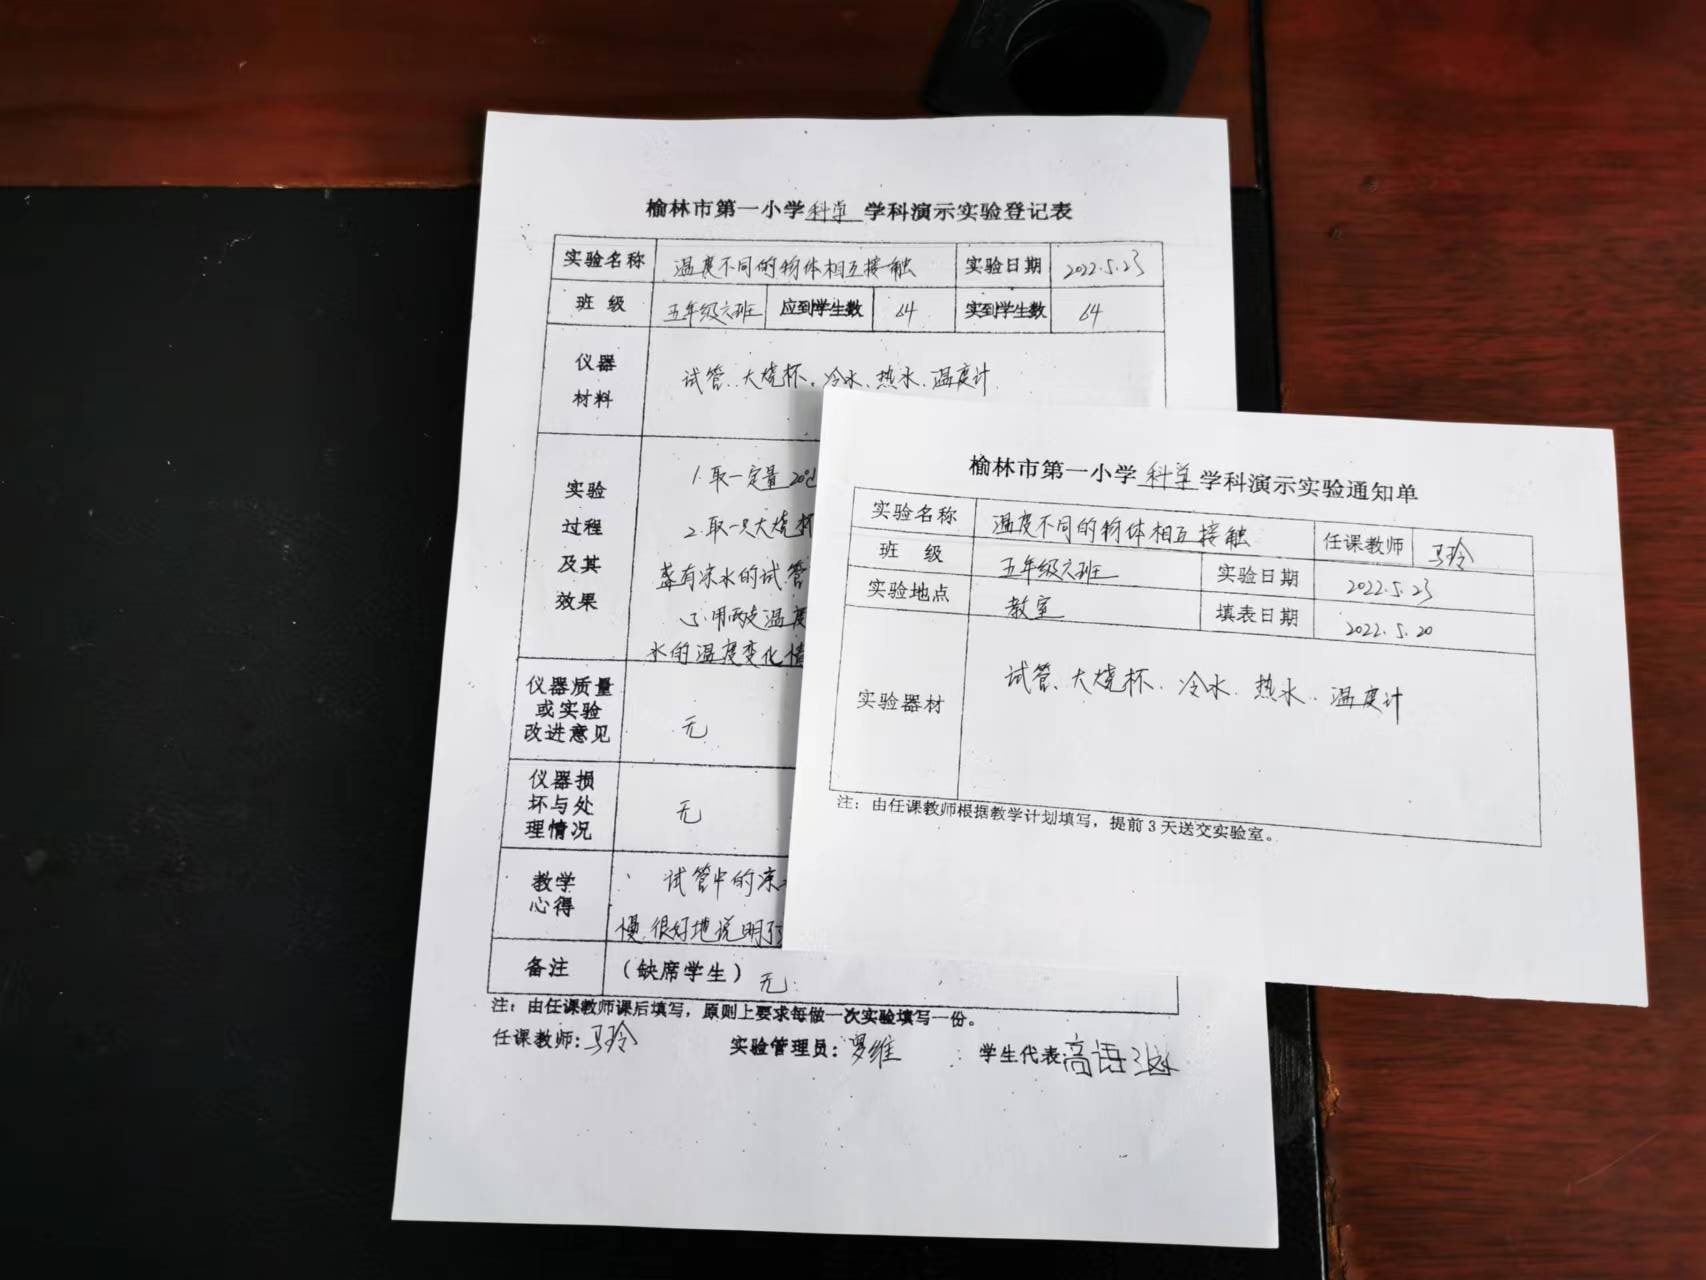 榆林市第一小学科学学科演示实验登记表
实验名称 温度不同的物体相互接触 实验日期 2022.5.23
班 级 五年级六班 应到学生数 64 实到学生数 64
仪器
材料
试管、大烧杯、冷水、热水、温度计
实验
过程
及其
效果
1.取一定量20℃
2.取一只大烧杯
盛有凉水的试管
3.用两支温度
水的温度变化情
仪器质量
或实验
改进意见
无
仪器损
坏与处
理情况
无
教学
心得
试管中的凉
慢,很好地说明了
备注 (缺席学生) 无
注:由任课教师课后填写,原则上要求每做一次实验填写一份。
任课教师:马玲 实验管理员:罗维 学生代表:高语
榆林市第一小学科学学科演示实验通知单
实验名称 温度不同的物体相互接触 任课教师 马玲
班 级 五年级六班 实验日期 2022.5.23
实验地点 教室 填表日期 2022.5.20
实验器材 试管、大烧杯、冷水、热水、温度计
注:由任课教师根据教学计划填写,提前3天送交实验室。